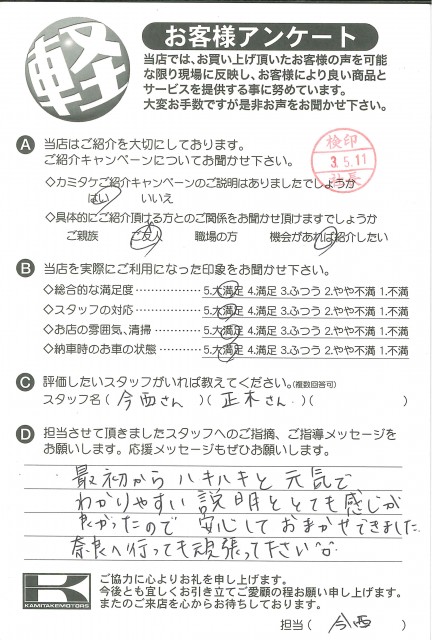 軽
お客様アンケート
当店では、お買い上げ頂いたお客様の声を可能
な限り現場に反映し、お客様により良い商品と
サービスを提供する事に努めています。
大変お手数ですが是非お声をお聞かせ下さい。
A 当店はご紹介を大切にしております。
ご紹介キャンペーンについてお聞かせ下さい。
検印
3.5.11
社長
◇カミタケご紹介キャンペーンのご説明はありましたでしょうか
はい いいえ
◇具体的にご紹介頂ける方とのご関係をお聞かせ頂けますでしょうか
ご親族 ご友人 職場の方 機会があれば紹介したい
B 当店を実際にご利用になった印象をお聞かせ下さい。
◇総合的な満足度‥‥‥‥‥ 5.大満足 4.満足 3.ふつう 2.やや不満 1.不満
◇スタッフの対応‥‥‥‥‥ 5.大満足 4.満足 3.ふつう 2.やや不満 1.不満
◇お店の雰囲気、清掃‥‥‥ 5.大満足 4.満足 3.ふつう 2.やや不満 1.不満
◇納車時のお車の状態‥‥‥ 5.大満足 4.満足 3.ふつう 2.やや不満 1.不満
C 評価したいスタッフがいれば教えてください。(複数回答可)
スタッフ名(今西さん)(正木さん)( )
D 担当させて頂きましたスタッフへのご指摘、ご指導メッセージを
お願いします。応援メッセージもぜひお願いします。
最初からハキハキと元気で
わかりやすい説明ととても感じが
良かったので安心しておまかせできました
奈良へ行っても頑張って下さい^o^
K
KAMITAKEMOTORS
ご協力に心よりお礼を申し上げます。
今後とも宜しくお引き立てご愛顧の程お願い申し上げます。
またのご来店を心からお待ちしております。
担当( 今西 )